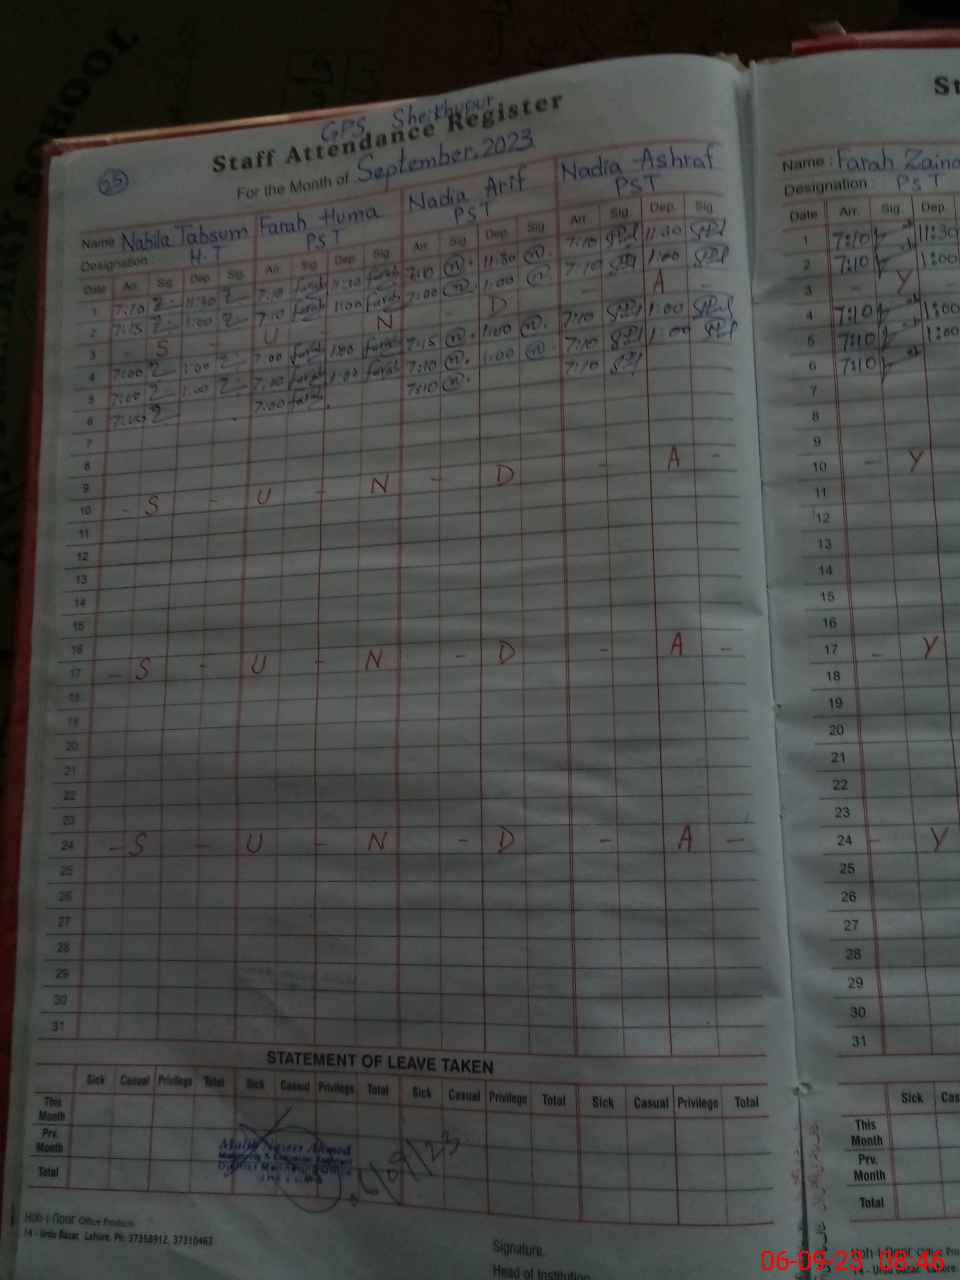 SCHOOL
GPS Sheikhupur
Staff Attendance Register
55
For the Month of September, 2023
Name Nabila Tabsum Farah Huma Nadia Arif Nadia Ashraf
Designation H.T PST PST PST
Date Arr. Sig. Dep. Sig. Arr. Sig. Dep. Sig. Arr. Sig. Dep. Sig. Arr. Sig. Dep. Sig.
1 7:10 11:30 7:10 farah 11:30 farah 7:10 n 11:30 n 7:10 11:30
2 7:15 1:00 7:10 farah 1:00 farah 7:00 n 1:00 n 7:10 1:00
3 - S - U - N - D - A -
4 7:00 1:00 7:00 farah 1:00 farah 7:15 n 1:00 n 7:10 1:00
5 7:00 1:00 7:00 farah 1:00 farah 7:10 n 1:00 n 7:10 1:00
6 7:00 7:00 farah 7:10 n 7:10
7
8
9
10 - S - U - N - D - A -
11
12
13
14
15
16
17 - S - U - N - D - A -
18
19
20
21
22
23
24 - S - U - N - D - A -
25
26
27
28
29
30
31
STATEMENT OF LEAVE TAKEN
Sick Casual Privilege Total Sick Casual Privilege Total Sick Casual Privilege Total Sick Casual Privilege Total
This Month
Prv. Month
Total
Malik Naseer Ahmed
Monitoring &
District Monitoring Office
/09/23
Office Products
14 - Urdu Bazar, Lahore. Ph: 37358912, 37310463
Signature.
Head of Institution
St
Name : Farah Zaina
Designation : PST
Date Arr. Sig. Dep.
1 7:10 11:30
2 7:10 1:00
3 - Y -
4 7:10 1:00
5 7:10 1:00
6 7:10
7
8
9
10 - Y
11
12
13
14
15
16
17 - Y
18
19
20
21
22
23
24 - Y
25
26
27
28
29
30
31
Sick Cas
This Month
Prv. Month
Total
14 - Urdu Bazar, Lahore
06-09-23 08:46